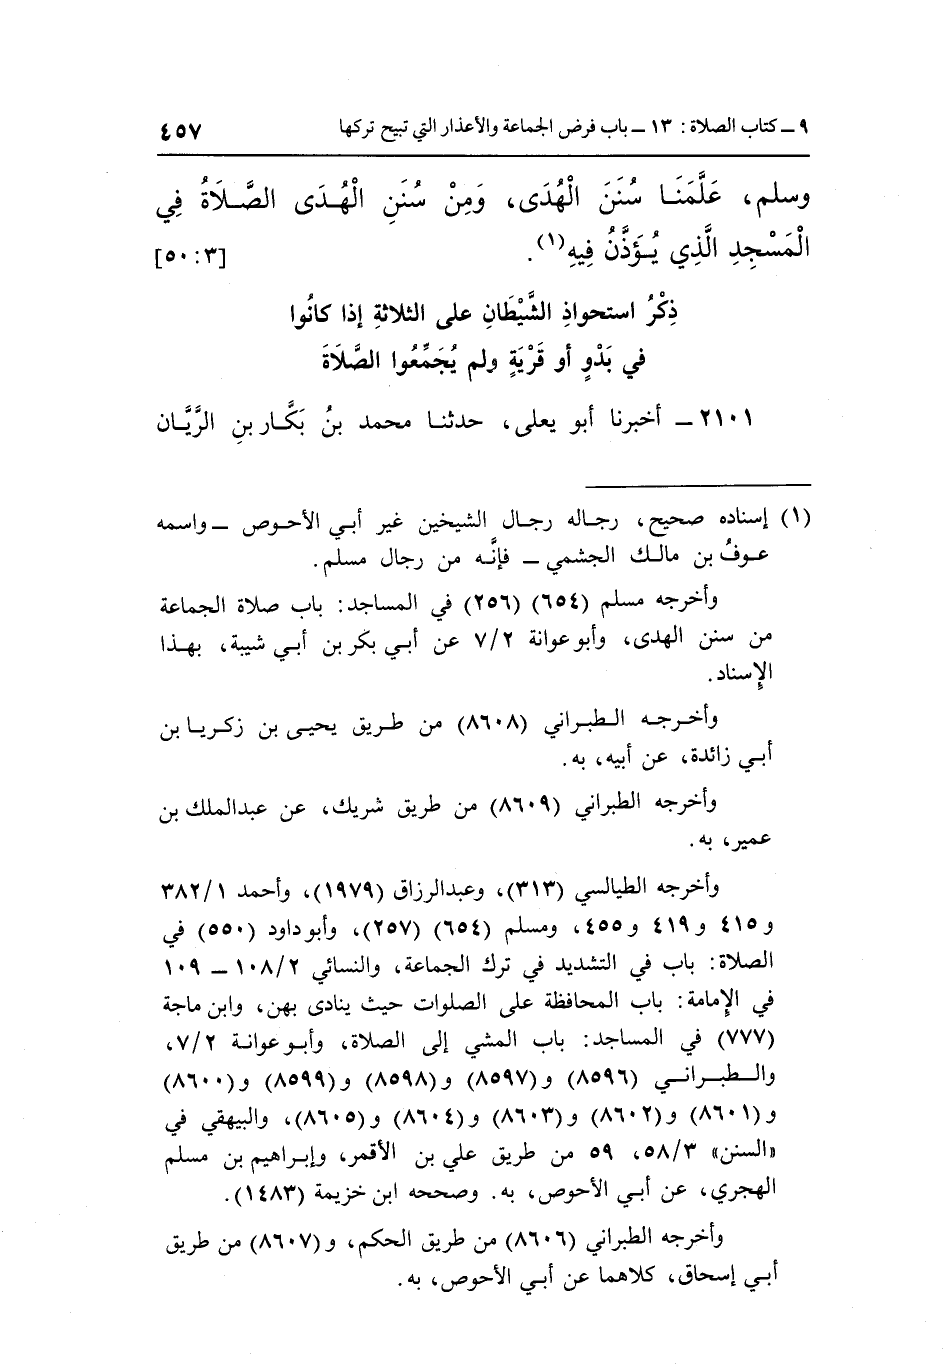 ٩ ــ كتاب الصلاة : ١٣ ــ باب فرض الجماعة والأعذار التي تبيح تركها ٤٥٧
وسلم، عَلَّمَنَـا سُنَنَ الْهُدَى، وَمِنْ سُنَنِ الْهُـدَى الصَّـلَاةُ فِي
الْمَسْجِدِ الَّذِي يُـؤَذَّنُ فِيهِ(١). [٣: ٥٠]
ذِكْرُ استحواذِ الشَّيْطَانِ على الثلاثةِ إذا كانُوا
في بَدْوٍ أو قَرْيَةٍ ولم يُجَمِّعُوا الصَّلَاةَ
٢١٠١ ــ أخبرنا أبو يعلى، حدثنـا محمد بنُ بَكَّـار بنِ الرَّيَّـان
(١) إسناده صحيح، رجـاله رجـال الشيخين غير أبـي الأحـوص ــ واسمه
عـوفُ بن مالـك الجشمي ــ فإنَّـه من رجال مسلم.
وأخرجه مسلم (٦٥٤) (٢٥٦) في المساجد: باب صلاة الجماعة
من سنن الهدى، وأبو عوانة ٧/٢ عن أبـي بكر بن أبـي شيبة، بهـذا
الإِسناد.
وأخـرجـه الـطبـراني (٨٦٠٨) من طـريق يحيـى بن زكـريـا بن
أبـي زائدة، عن أبيه، به.
وأخرجه الطبراني (٨٦٠٩) من طريق شريك، عن عبدالملك بن
عمير، به.
وأخرجه الطيالسي (٣١٣)، وعبدالرزاق (١٩٧٩)، وأحمد ٣٨٢/١
و ٤١٥ و ٤١٩ و ٤٥٥، ومسلم (٦٥٤) (٢٥٧)، وأبو داود (٥٥٠) في
الصلاة: باب في التشديد في ترك الجماعة، والنسائي ١٠٨/٢ ــ ١٠٩
في الإِمامة: باب المحافظة على الصلوات حيث ينادى بهن، وابن ماجة
(٧٧٧) في المساجد: باب المشي إلى الصلاة، وأبـو عوانـة ٧/٢،
والـطبـرانـي (٨٥٩٦) و (٨٥٩٧) و (٨٥٩٨) و (٨٥٩٩) و (٨٦٠٠)
و (٨٦٠١) و (٨٦٠٢) و (٨٦٠٣) و (٨٦٠٤) و (٨٦٠٥)، والبيهقي في
«السنن» ٥٨/٣، ٥٩ من طريق علي بن الأقمر، وإبراهيم بن مسلم
الهجري، عن أبـي الأحوص، به. وصححه ابن خزيمة (١٤٨٣).
وأخرجه الطبراني (٨٦٠٦) من طريق الحكم، و (٨٦٠٧) من طريق
أبـي إسحاق، كلاهما عن أبـي الأحوص، به.